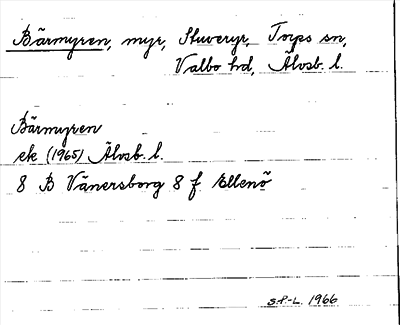 Bärmyren, myr, Stuveryr, Torps sn,
Valbo hd, Älvsb. l.
Bärmyren
ek (1965) Älvsb. l.
8 B Vänersborg 8 f Ellenö
S.P-L. 1966